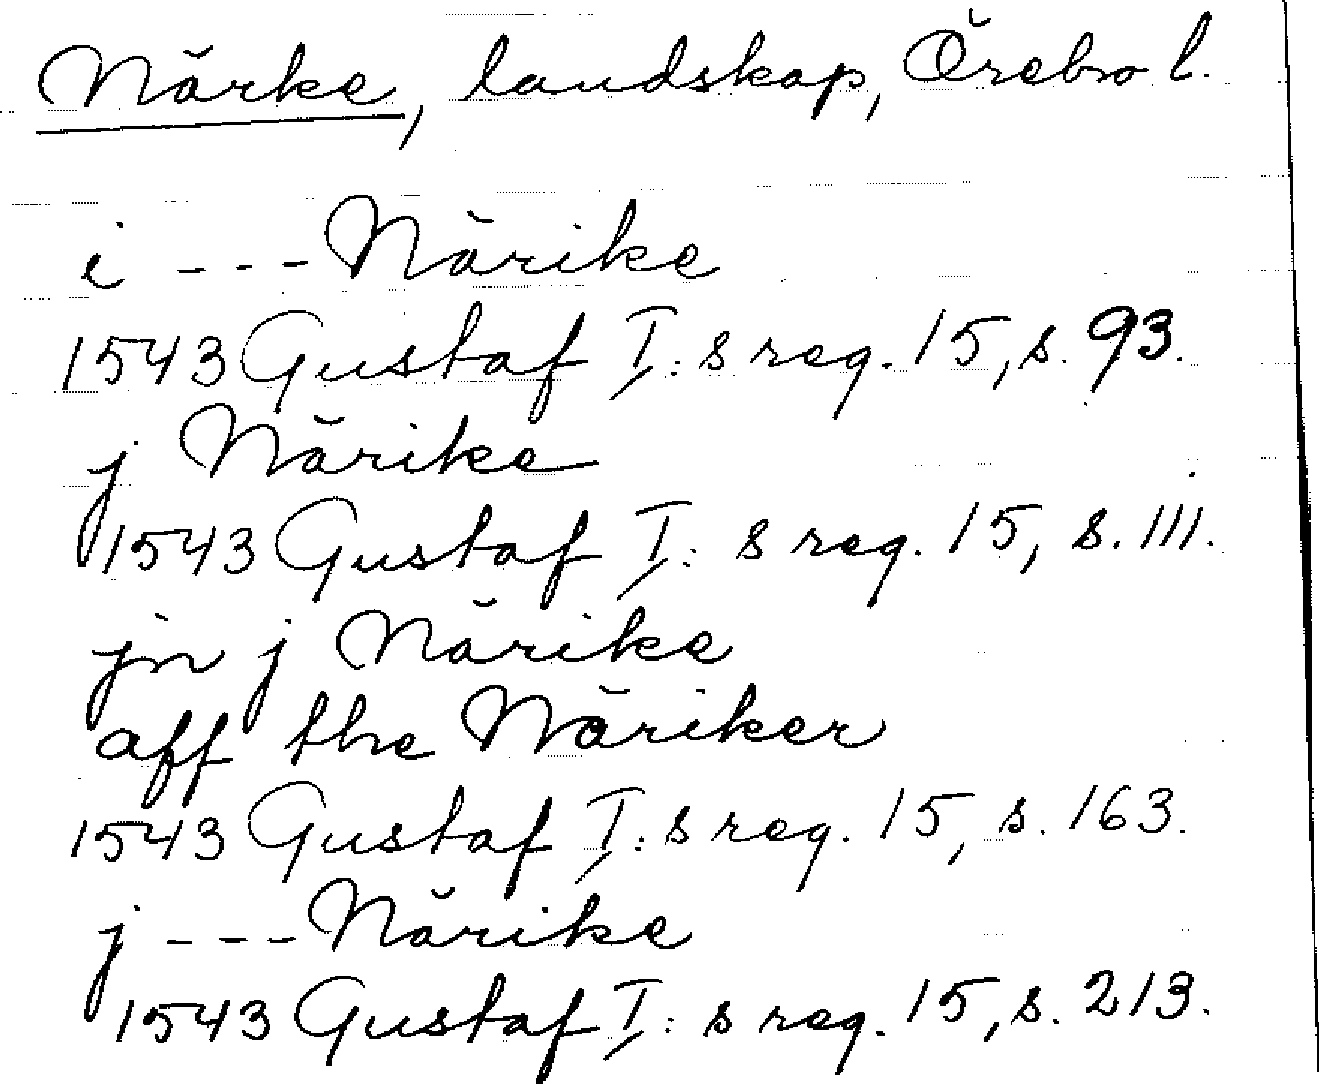 Närke, landskap, Örebro l.
i --- Närike
1543 Gustaf I: s reg. 15, s. 93.
j Närike
1543 Gustaf I: s reg. 15, s. 111.
jn j Närike
aff the Näriker
1543 Gustaf I: s reg. 15, s. 163.
j --- Närike
1543 Gustaf I: s reg. 15, s. 213.